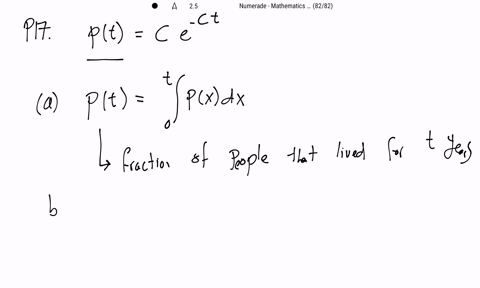 2.5 Numerade - Mathematics ... (82/82)
P17. p(t) = C e^-Ct
(a) P(t) = ∫₀ᵗ p(x) dx
↳ fraction of people that lived for t years
b